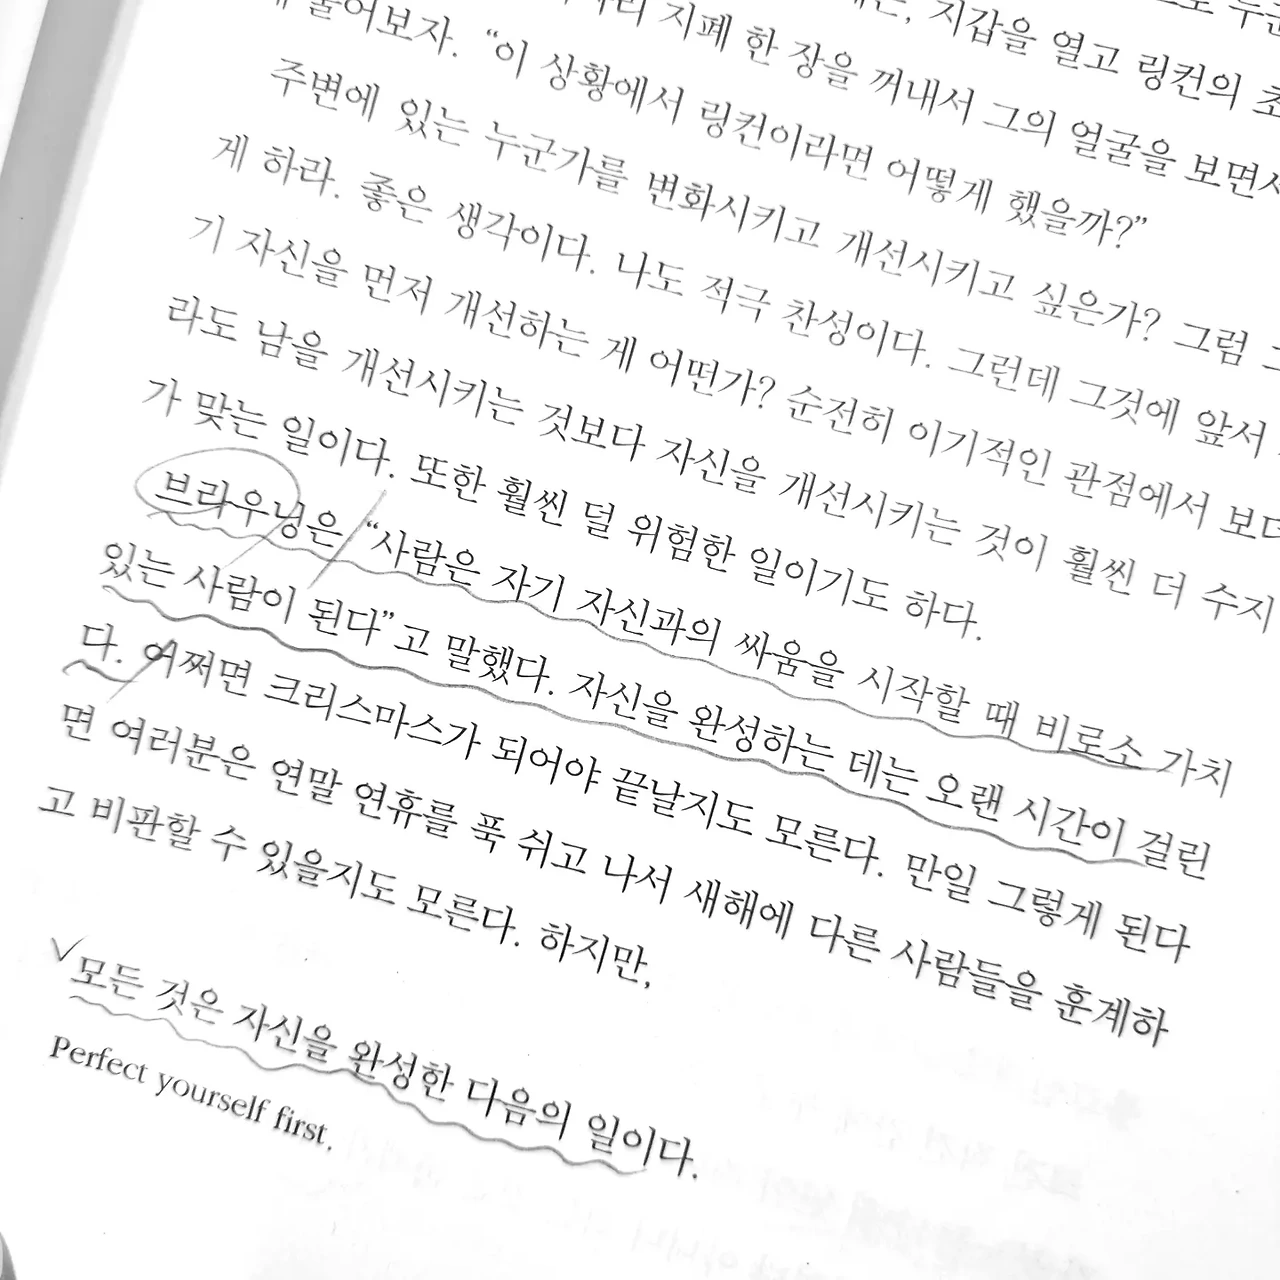 지갑을 열고 링컨의
지폐 한 장을 꺼내서 그의 얼굴을 보면서
물어보자. “이 상황에서 링컨이라면 어떻게 했을까?”
주변에 있는 누군가를 변화시키고 개선시키고 싶은가? 그럼
게 하라. 좋은 생각이다. 나도 적극 찬성이다. 그런데 그것에 앞서
기 자신을 먼저 개선하는 게 어떤가? 순전히 이기적인 관점에서 보더
라도 남을 개선시키는 것보다 자신을 개선시키는 것이 훨씬 더 수지
가 맞는 일이다. 또한 훨씬 덜 위험한 일이기도 하다.
브라우닝은 “사람은 자기 자신과의 싸움을 시작할 때 비로소 가치
있는 사람이 된다”고 말했다. 자신을 완성하는 데는 오랜 시간이 걸린
다. 어쩌면 크리스마스가 되어야 끝날지도 모른다. 만일 그렇게 된다
면 여러분은 연말 연휴를 푹 쉬고 나서 새해에 다른 사람들을 훈계하
고 비판할 수 있을지도 모른다. 하지만,
모든 것은 자신을 완성한 다음의 일이다.
Perfect yourself first.